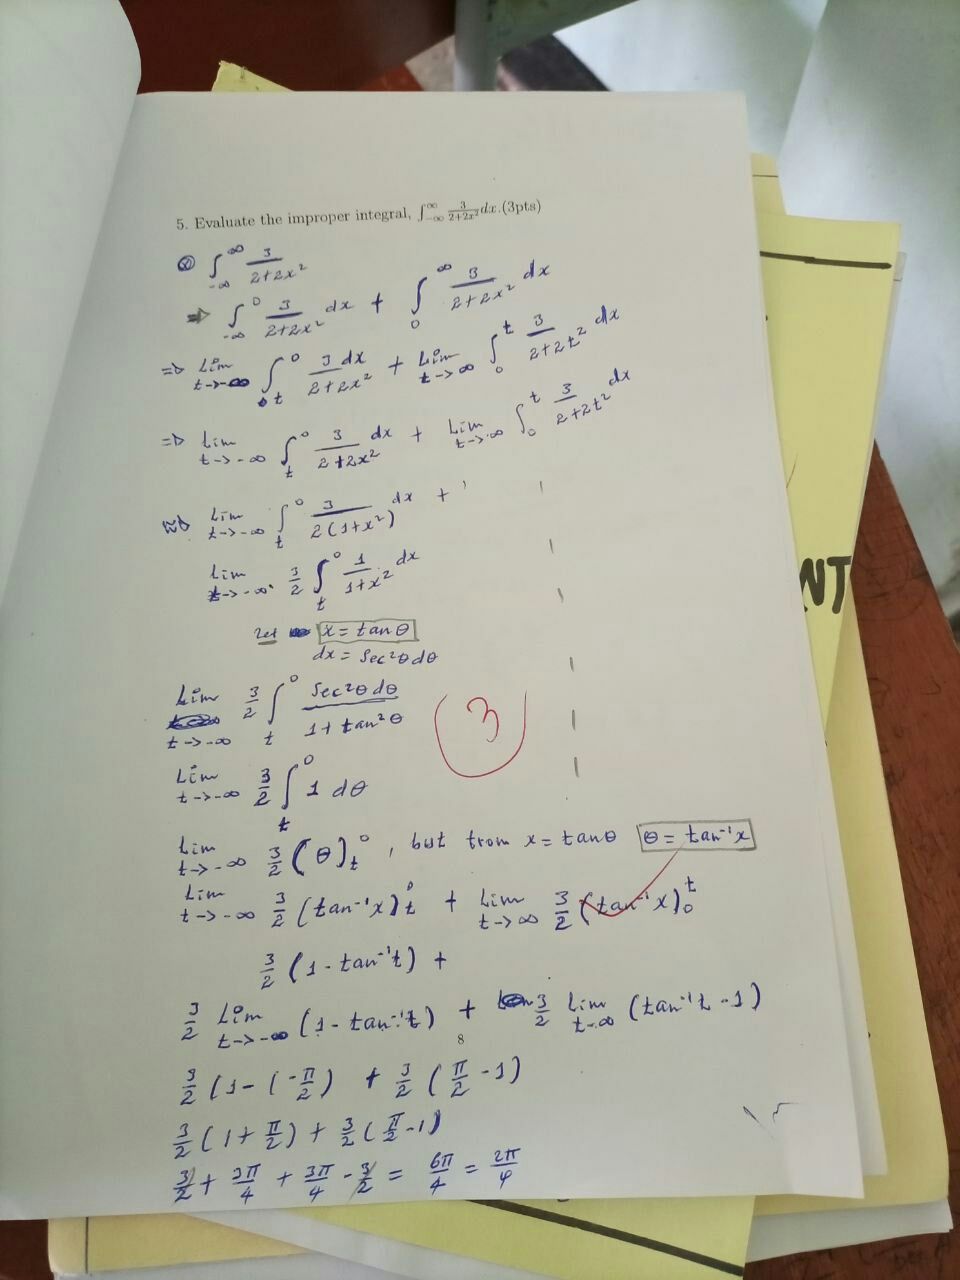 5. Evaluate the improper integral, ∫_{-∞}^{∞} 3/(2+2x²) dx.(3pts)
∫_{-∞}^{∞} 3/(2+2x²)
⇒ ∫_{-∞}^{0} 3/(2+2x²) dx + ∫_{0}^{∞} 3/(2+2x²) dx
⇒ Lim_{t→-∞} ∫_{t}^{0} 3dx/(2+2x²) + Lim_{t→∞} ∫_{0}^{t} 3/(2+2t²) dx
⇒ Lim_{t→-∞} ∫_{t}^{0} 3/(2+2x²) dx + Lim_{t→∞} ∫_{0}^{t} 3/(2+2t²) dx
⇒ Lim_{t→-∞} ∫_{t}^{0} 3/(2(1+x²)) dx +
Lim_{t→-∞} 3/2 ∫_{t}^{0} 1/(1+x²) dx
Let x = tanθ
dx = Sec²θdθ
Lim_{t→-∞} 3/2 ∫_{t}^{0} Sec²θdθ/(1+tan²θ)
3
Lim_{t→-∞} 3/2 ∫_{t}^{0} 1 dθ
Lim_{t→-∞} 3/2 (θ)_{t}^{0}, but from x = tanθ θ = tan⁻¹x
Lim_{t→-∞} 3/2 (tan⁻¹x)_{t}^{0} + Lim_{t→∞} 3/2 (tan⁻¹x)_{0}^{t}
3/2 (1 - tan⁻¹t) +
3/2 Lim_{t→-∞} (1 - tan⁻¹t) + 3/2 Lim_{t→∞} (tan⁻¹t - 1)
8
3/2 (1 - (-π/2) + 3/2 (π/2 - 1)
3/2 (1 + π/2) + 3/2 (π/2 - 1)
3/2 + 3π/4 + 3π/4 - 3/2 = 6π/4 = 2π/4
NT